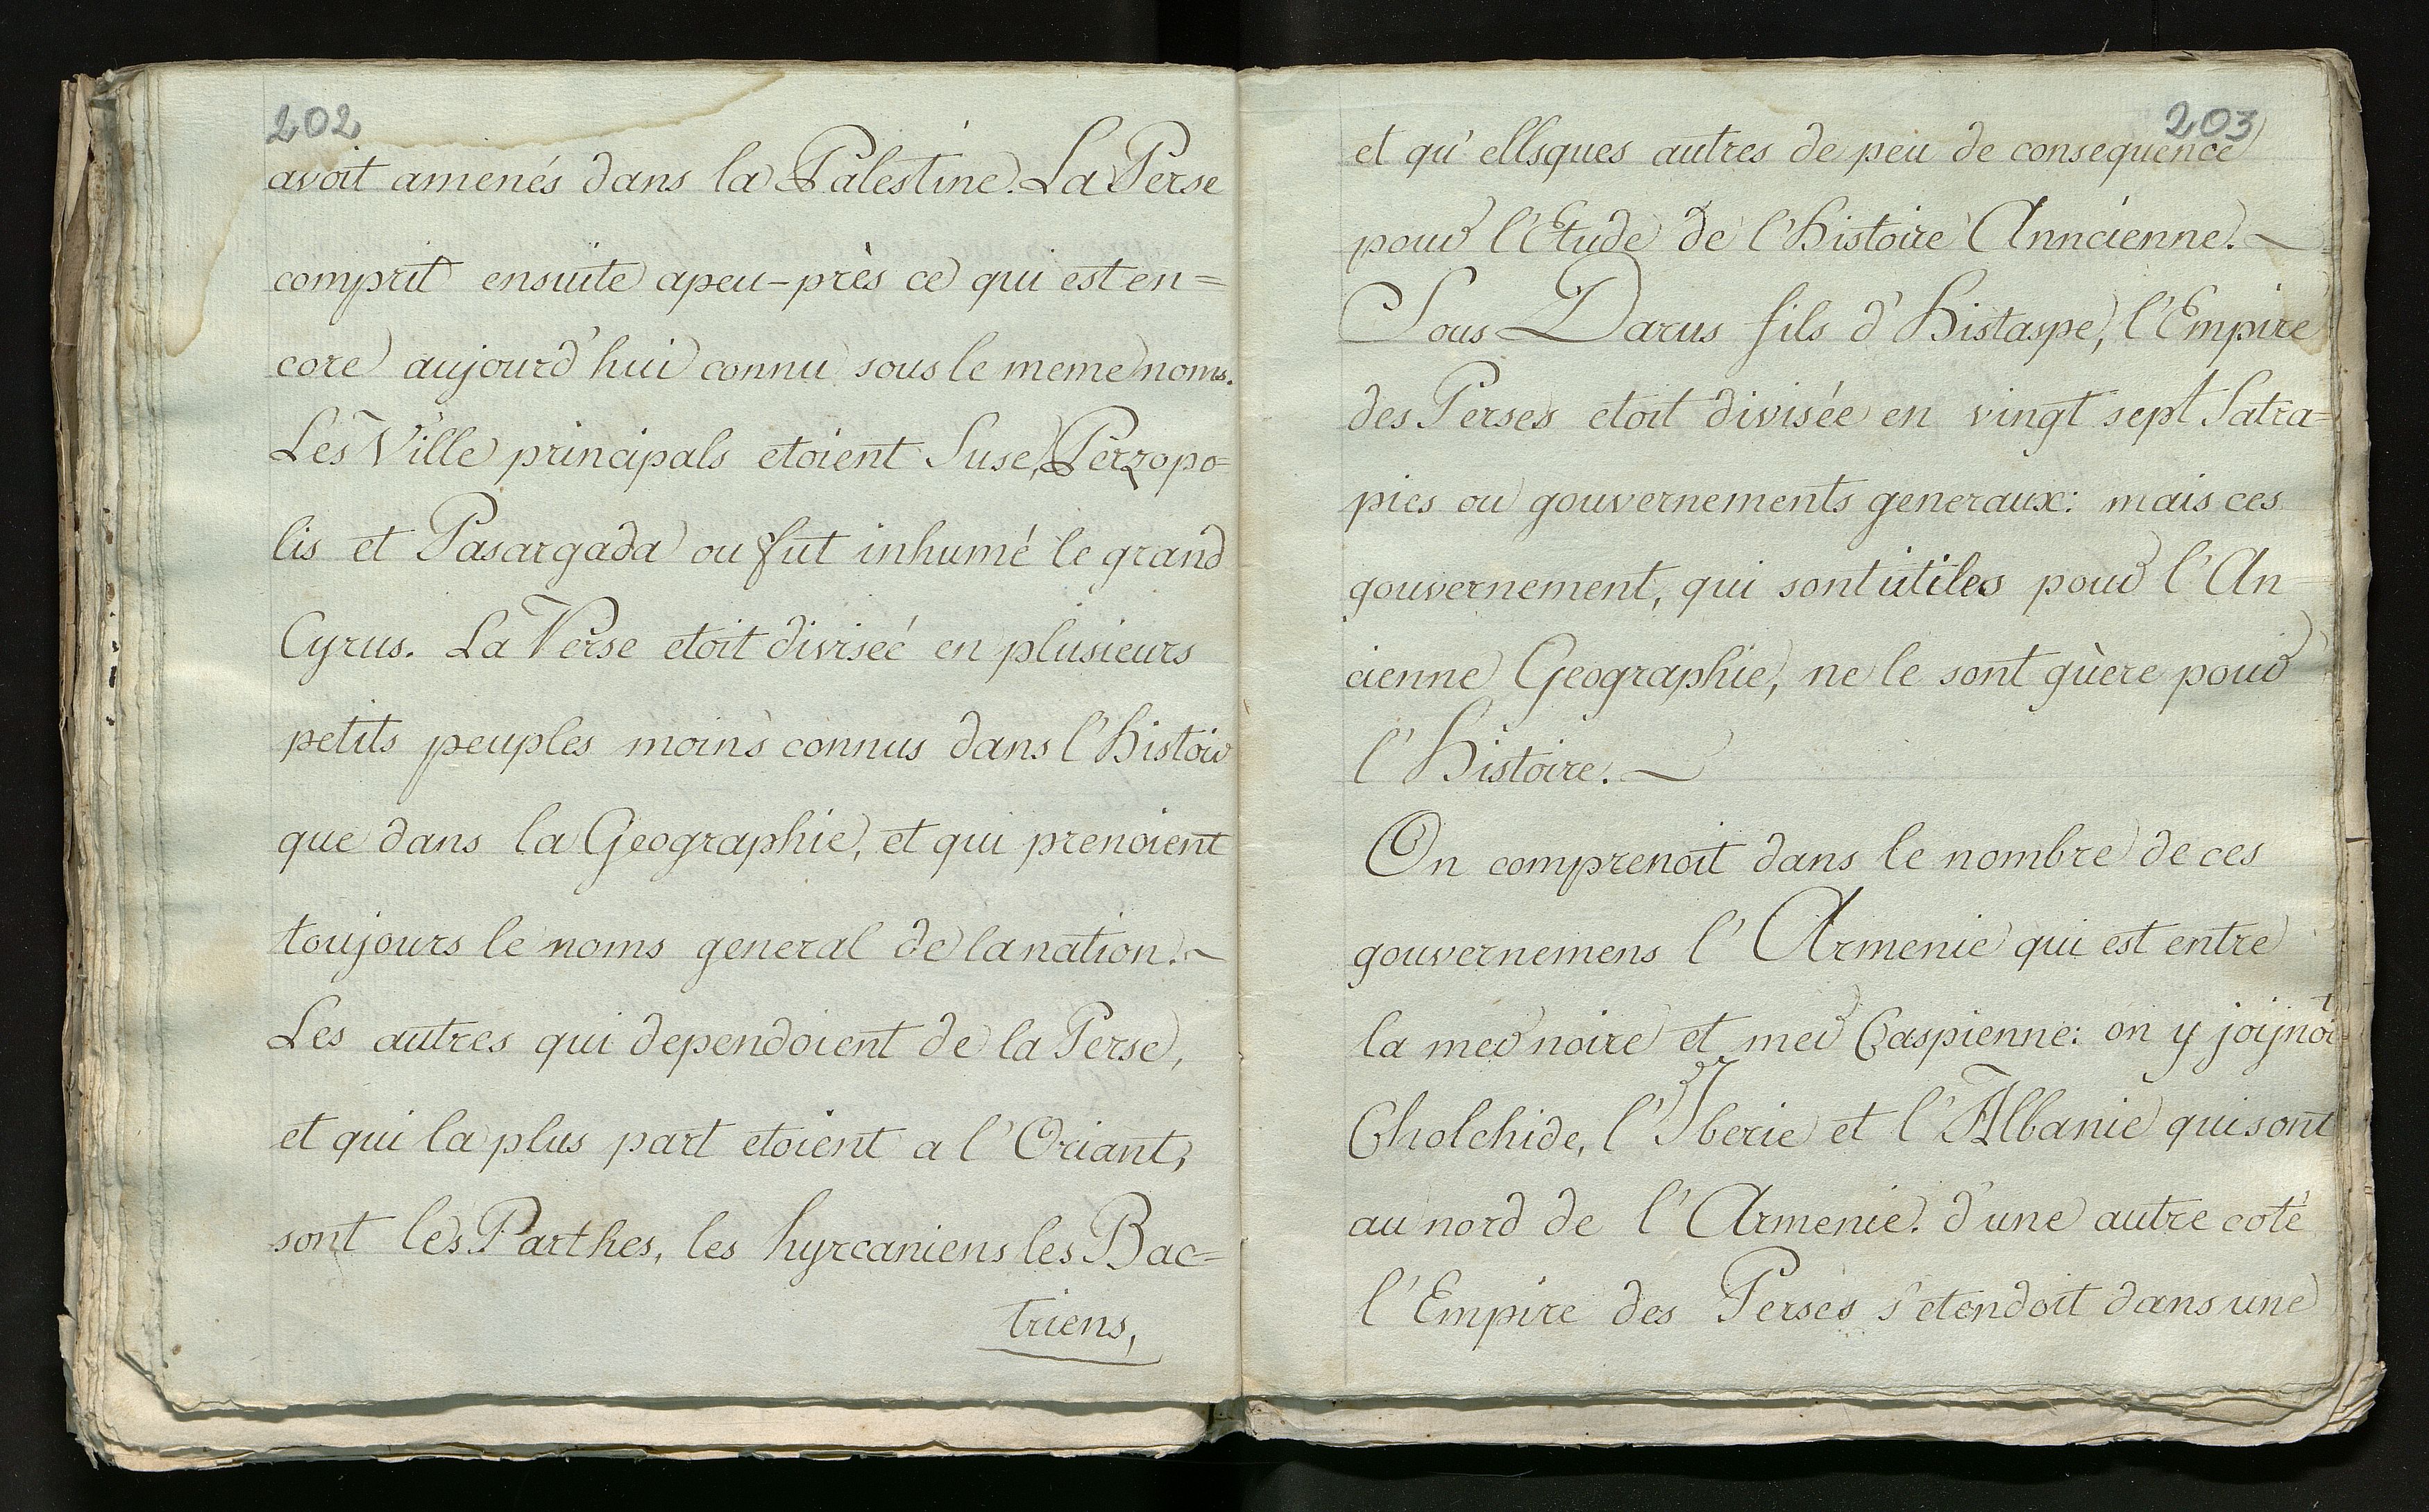 202
avoit amenés dans la Palestine. La Perse
comprit ensuite apeu-près ce qui est en=
core aujourd'hui connu sous le meme noms.
Les Ville principals etoient Suse, Perzopo=
lis et Pasargada ou fut inhumé le grand
Cyrus. La Perse etoit diviseé en plusieurs
petits peuples moins connus dans l'Histoir
que dans la Geographie, et qui prenoient
toujours le noms general de la nation.
Les autres qui dependoient de la Perse,
et qui la plus part etoient a l'Oriant,
sont les Parthes, les hyrcaniens les Bac=
triens,
203
et qu'ellsques autres de peu de consequence
pour l'Etude de l'Histoire Anncienne.
Sous Darus fils d'Histaspe, l'Empire
des Perses etoit divisée en vingt sept Satra=
pies ou gouvernements generaux: mais ces
gouvernement, qui sont utiles pour l'An=
cienne Geographie, ne le sont guère pour
l'Histoire.
On comprenoit dans le nombre de ces
gouvernemens l'Armenie qui est entre
la mer noire et mer Caspienne: on y joijnoit
Cholchide, l'Iberie et l'Albanie qui sont
au nord de l'Armenie. d'une autre coté
l'Empire des Perses s'etendoit dans une